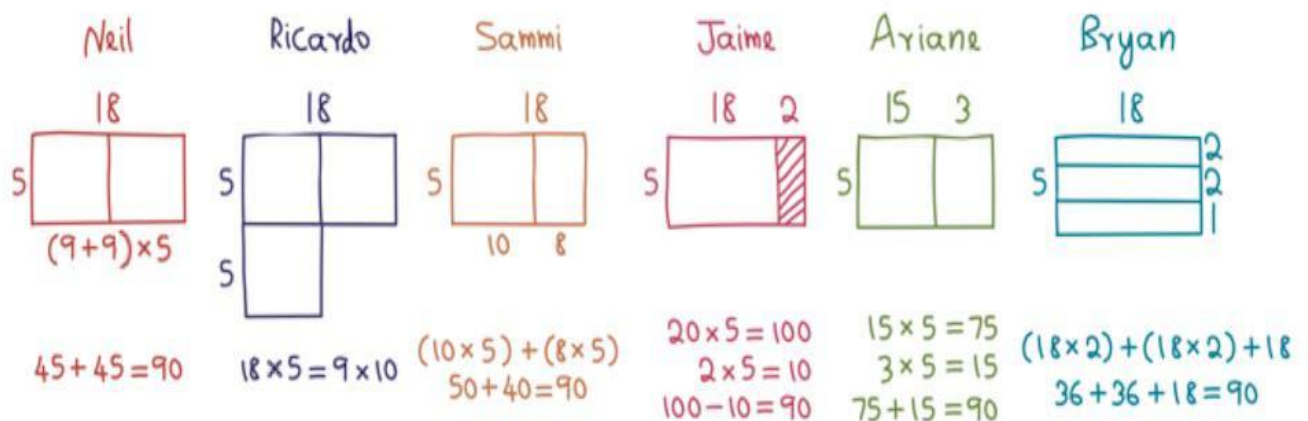 Neil
18
5
(9+9)×5
45+45=90
Ricardo
18
5
5
18×5=9×10
Sammi
18
5
10 8
(10×5)+(8×5)
50+40=90
Jaime
18 2
5
20×5=100
2×5=10
100-10=90
Ariane
15 3
5
15×5=75
3×5=15
75+15=90
Bryan
18
5
2
2
1
(18×2)+(18×2)+18
36+36+18=90